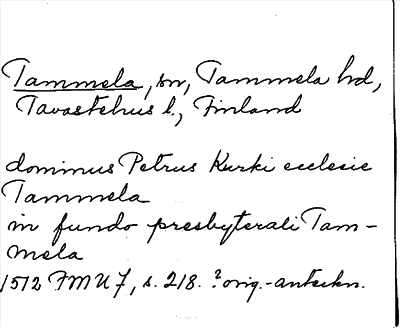 Tammela, sn, Tammela hd,
Tavastehus l., Finland
dominus Petrus Kurki ecclesie
Tammela
in fundo presbyterali Tam-
mela
1512 FMU 7, s. 218. ? orig.-anteckn.